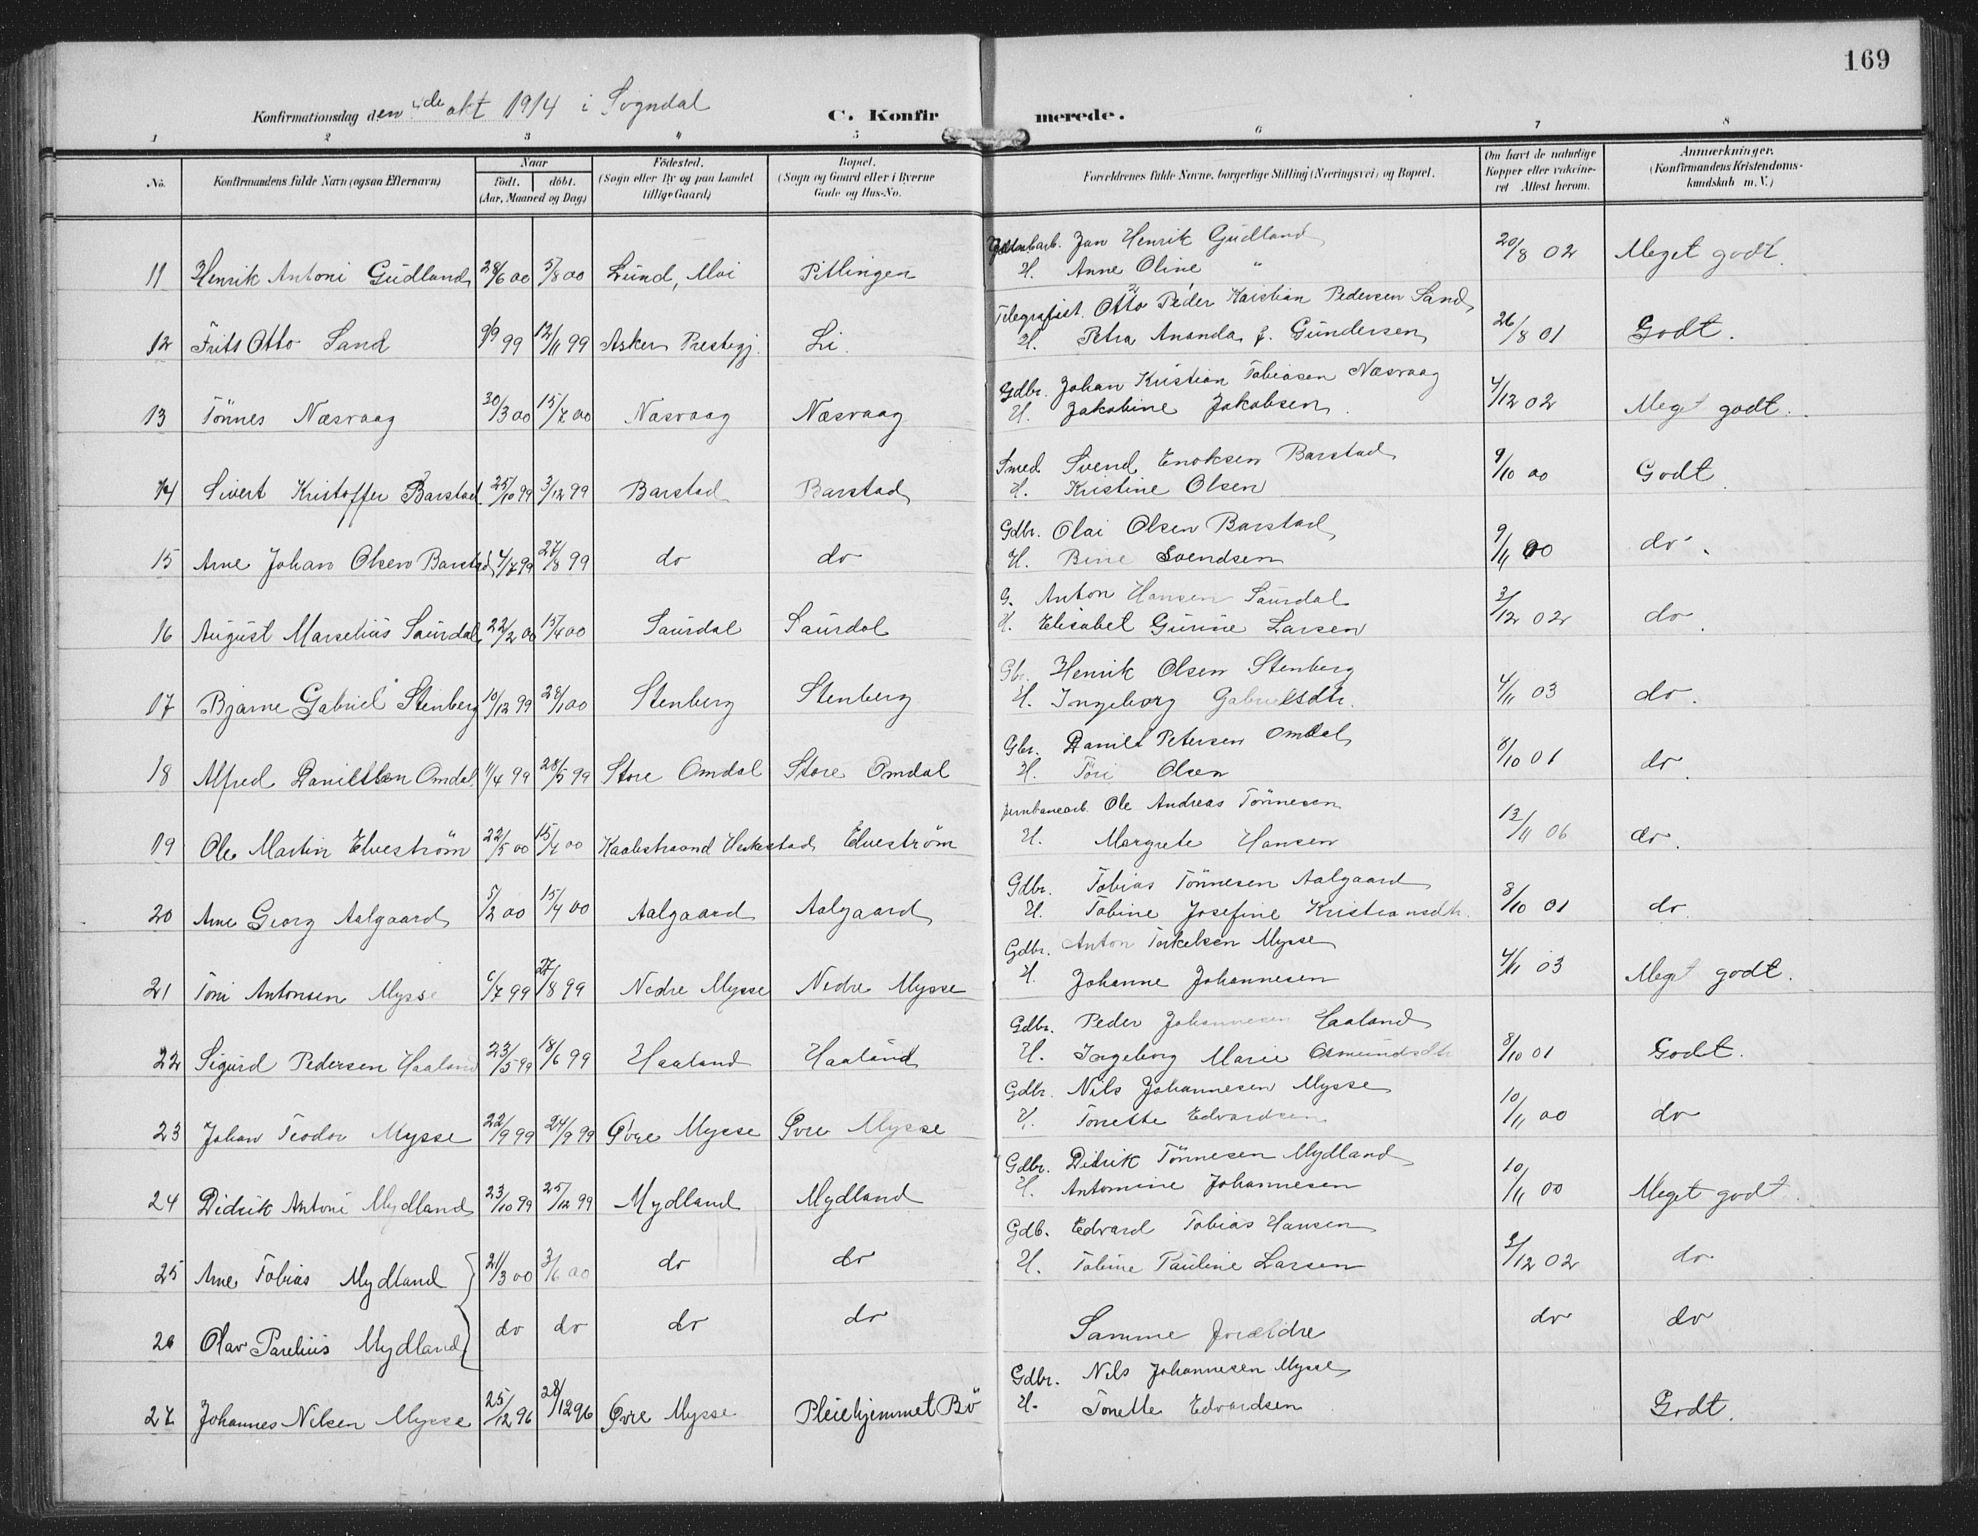 169
Konfirmationsdag den 4de okt 1914 i Sogndal
C. Konfirmerede.
1 2 3 4 5 6 7 8
No. Konfirmandens fulde Navn (ogsaa Efternavn) Naar født. døbt. (Aar, Maaned og Dag) Fødested. (Sogn eller By og paa Landet tillige Gaard) Bopæl. (Sogn og Gaard eller i Byerne Gade og Hus-No. Forældrenes fulde Navne, borgerlige Stilling (Næringsvei) og Bopæl. Om havt de naturlige Kopper eller vakcineret Attest herom. Anmærkninger. (Konfirmandens Kristendomskundskab m. V.)
Jan Henrik Gudland
11 Henrik Antoni Gudland 28/6 00 5/8 00 Lund, Moi Pitlingen H. Anne Oline " 20/8 02 Meget godt.
Telegrafist. Otto Peder Karstian Pedersen Sand
12 Frits Otto Sand 9/9 99 12/11 99 Asker Prestegj. Li. H. Petra Ananda f. Gundersen 26/8 01 Godt.
Gdbr. Johan Kristian Tobiasen Næsvaag
13 Tönnes Næsvaag 30/3 00 15/7 00 Næsvaag Næsvaag H. Jakobine Jakobsen. 4/12 02 Meget godt.
Smed Svend Enoksen Barstad
14 Sivert Kristoffer Barstad 25/10 99 3/12 99 Barstad Barstad H. Kristine Olsen 9/10 00 Godt.
Gdbr. Olai Olsen Barstad
15 Arne Johan Olsen Barstad 4/7 99 27/8 99 do do H. Bine Svendsen 9/11 00 do.
G. Anton Hansen Saurdal
16 August Marselius Saurdal 22/2 00 15/4 00 Saurdal Saurdal H. Elisabet Gurine Larsen 3/12 02 do.
Gbr. Henrik Olsen Stenberg
17 Bjarne Gabriel Stenberg 10/12 99 28/1 00 Stenberg Stenberg H. Ingeborg Gabrielsdtr. 4/11 03 do.
Gbr. Daniel Petersen Omdal
18 Alfred Danielsen Omdal. 11/4 99 28/5 99 Store Omdal Store Omdal H. Tori Olsen 8/10 01 do.
Jernbanearb. Ole Andreas Tönnesen
19 Ole Martin Elveström 22/5 00 15/7 00 Kaalestraand Heskestad Elveström H. Margrete Hansen 13/11 06 do.
Gdbr. Tobias Tönnesen Aalgaard
20 Arne Georg Aalgaard 5/2 00 15/4 00 Aalgaard Aalgaard H. Tobine Josefine Kristiansdtr. 8/10 01 do.
Gdbr. Anton Torkelsen Mysse
21 Toni Antonsen Mysse 6/7 99 27/8 99 Nedre Mysse Nedre Mysse H. Johanne Johannesen 4/11 03 Meget godt.
Gdbr. Peder Johannesen Haaland
22 Sigurd Pedersen Haaland 23/5 99 18/6 99 Haaland Haaland H. Ingeborg Marie Osmundsdtr 8/10 01 Godt.
Gdbr. Nils Johannesen Mysse
23 Johan Teodor Mysse 22/9 99 24/9 99 Øvre Mysse Øvre Mysse H. Tonette Edvardsen 10/11 00 do
Gdbr. Didrik Tönnesen Mydland
24 Didrik Antoni Mydland 23/10 99 25/12 99 Mydland Mydland H. Antomine Johannesen 10/11 00 Meget godt.
Gdb. Edvard Tobias Hansen
25 Arne Tobias Mydland 21/3 00 3/6 00 do do H. Tobine Pauline Larsen 3/12 02 do
26 Olav Parelius Mydland do do do do Samme forældre do do
Gdbr. Nils Johannesen Mysse
27 Johannes Nilsen Mysse 25/12 96 28/12 96 Øvre Mysse Pleiehjemmet Bö H. Tonette Edvardsen Godt.